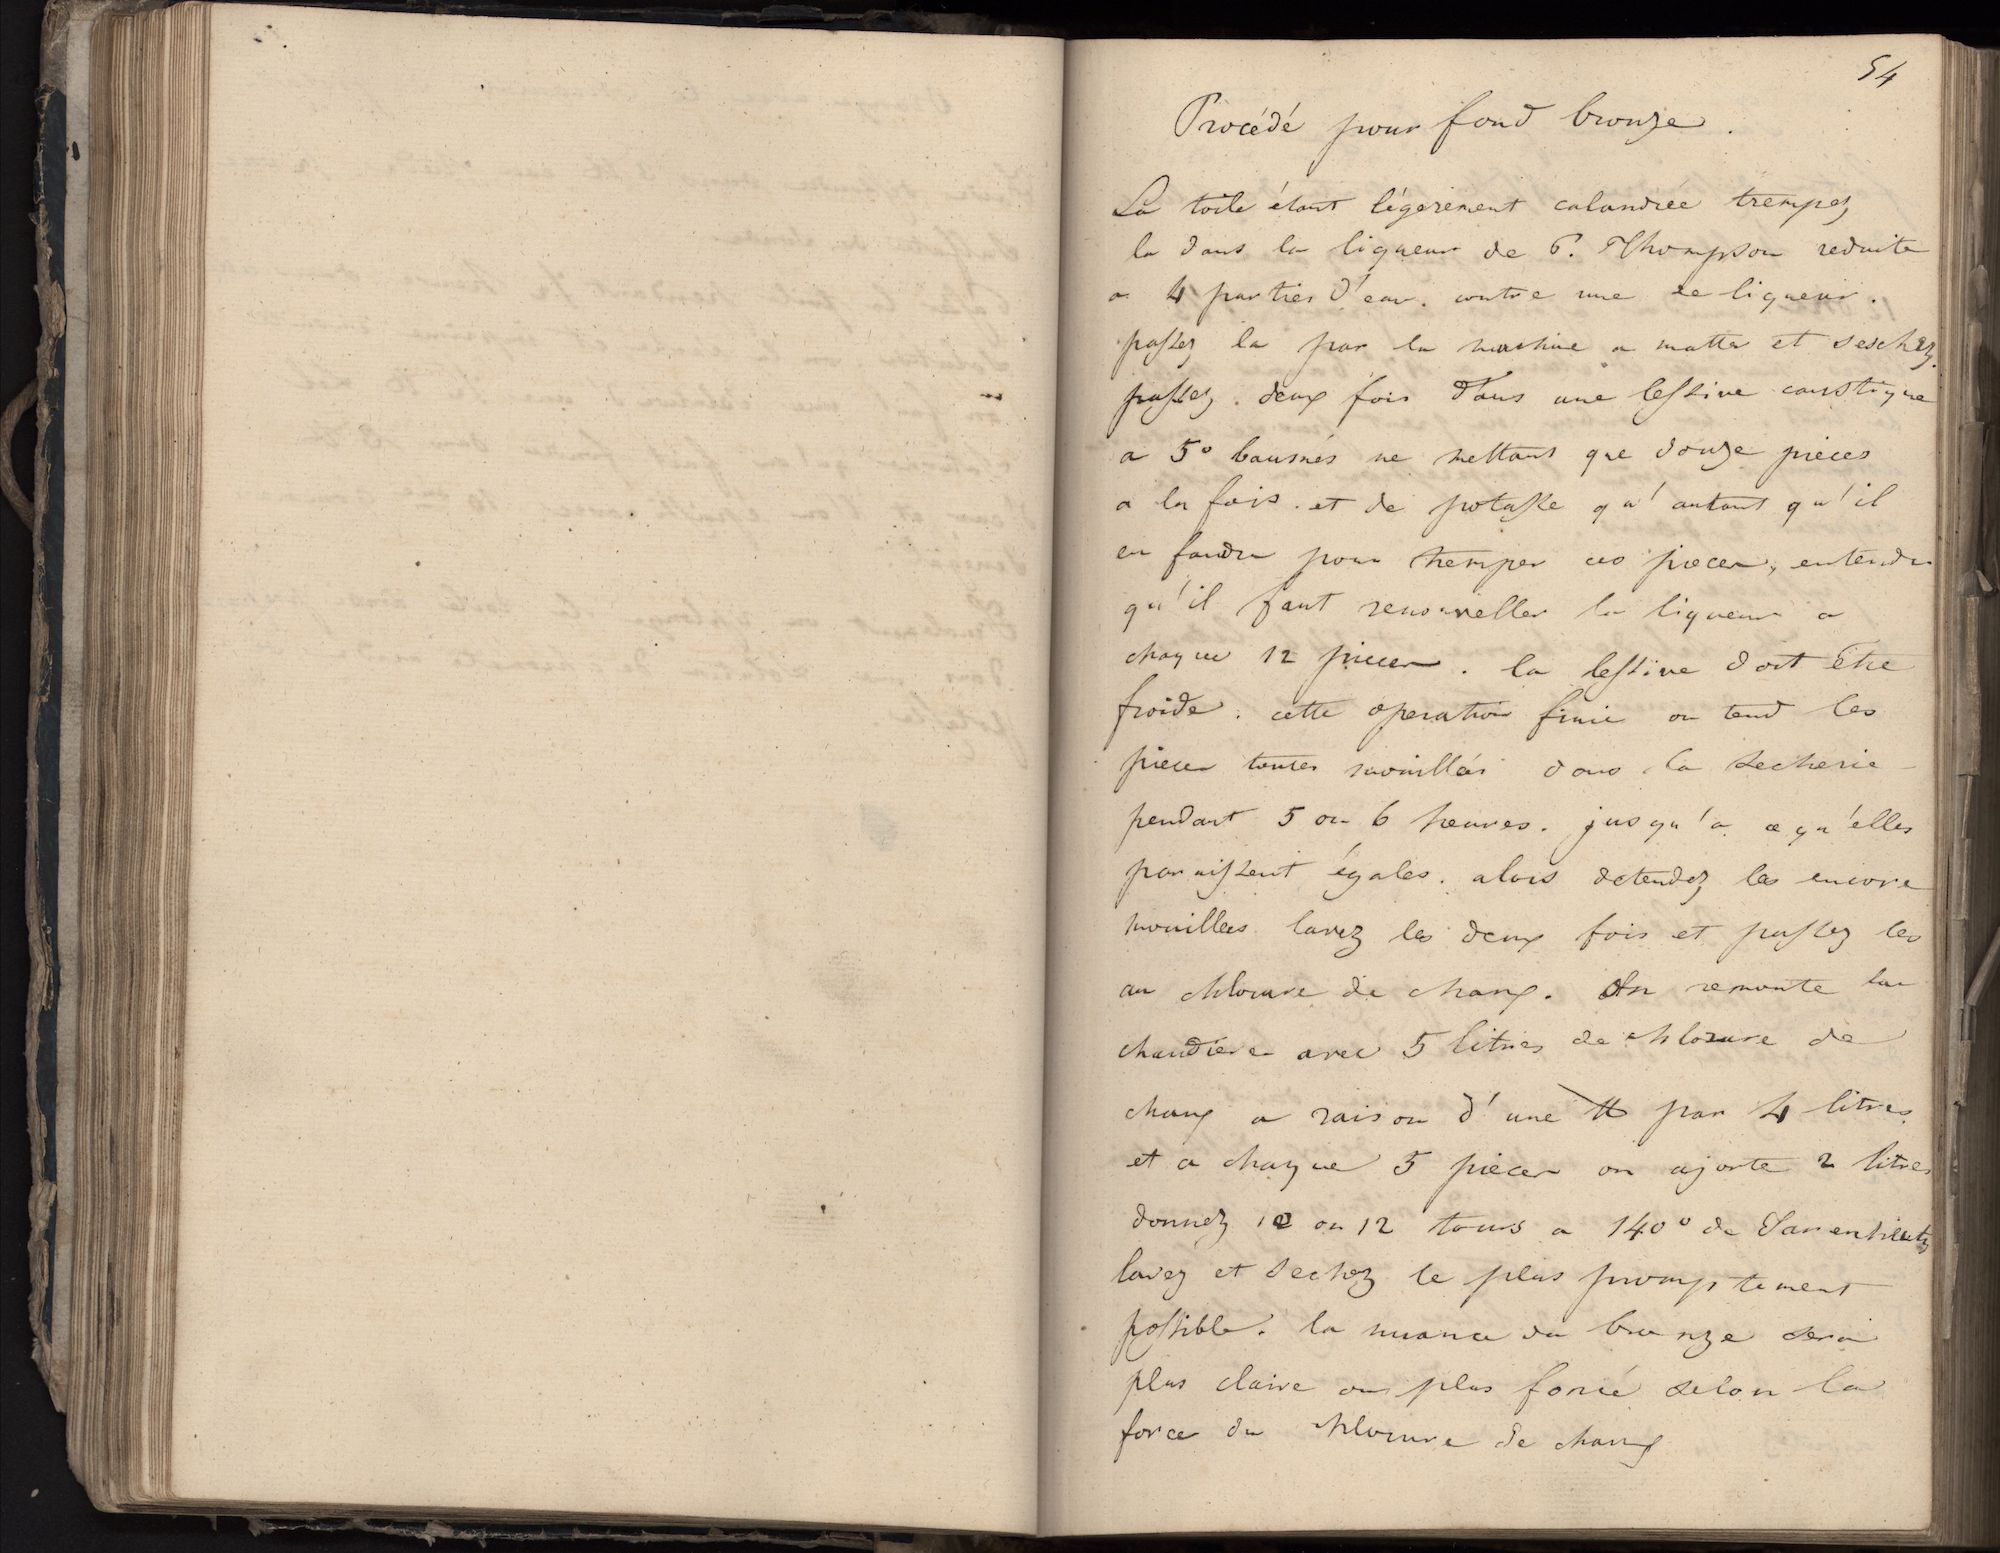 54
Procédé pour fond bronze.
La toile étant légerement calandrée trempez
la dans la liqueur de P. Thompson reduite
a 4 parties d'eau. contre une de liqueur.
passez la par la machine a matter et seschez.
passez. deux fois dans une lessive caustique
a 5° baumés ne mettant que douze pièces
a la fois. et de potasse qu'autant qu'il
en faudra pour tremper ces pieces, entendu
qu'il faut renouveller la liqueur a
chaque 12 pieces. la lessive doit être
froide. cette operation finie on tend les
pieces toutes mouillées dans la secherie
pendant 5 ou 6 heures. jusqu'a ce qu'elles
paraissent égales. alors detendez les encore
mouillées lavez les deux fois et passez les
au chlorure de chaux. On remonte la
chaudière avec 5 litres de chlorure de
chaux a raison d'une ℔ par 4 litres.
et a chaque 5 pièces on ajoute 2 litres
donnez 10 ou 12 tours a 140° de
lavez et sechez le plus promptement
possible. la nuance du bronze sera
plus claire ou plus foncé selon la
force du chlorure de chaux